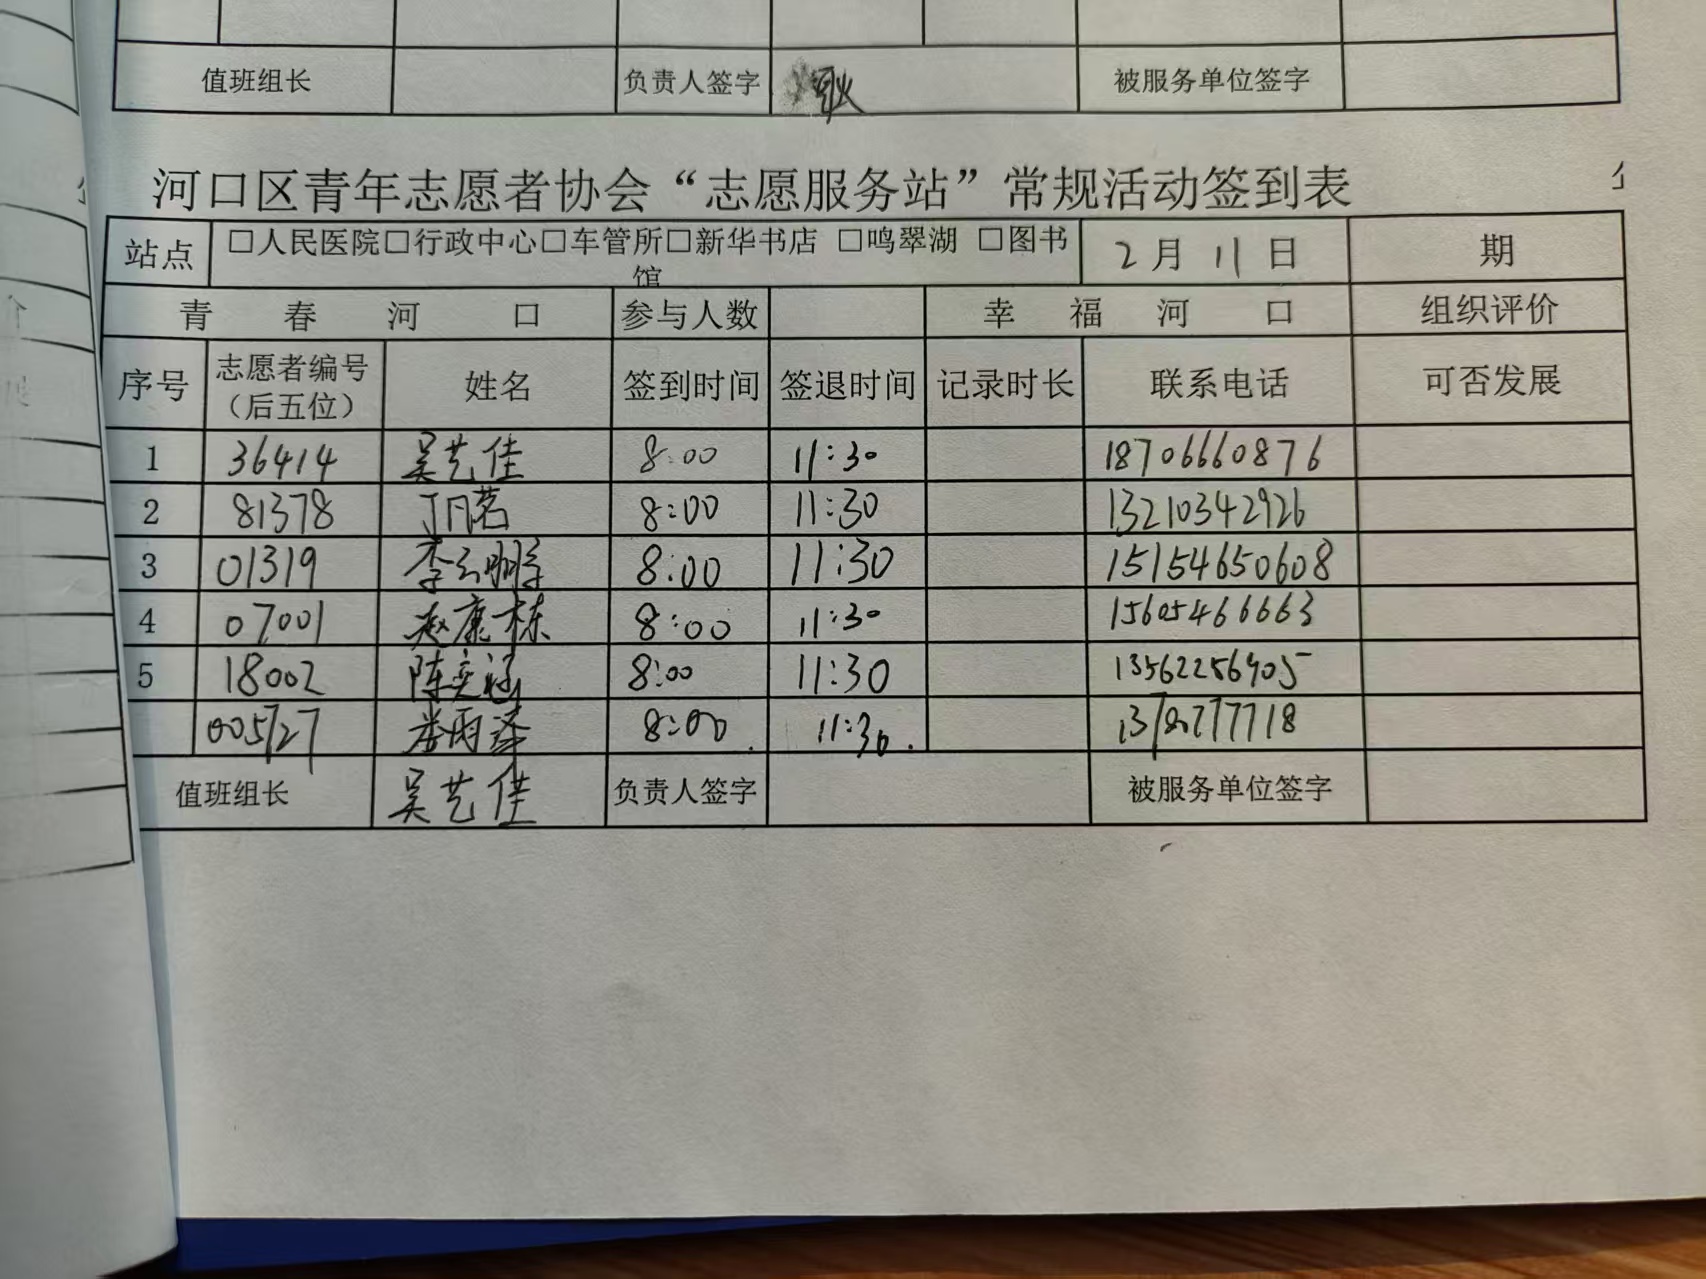 值班组长 负责人签字 被服务单位签字
河口区青年志愿者协会“志愿服务站”常规活动签到表
站点 □人民医院□行政中心□车管所□新华书店 □鸣翠湖 □图书 2月11日 期
馆
青春河口 参与人数 幸福河口 组织评价
序号 志愿者编号 姓名 签到时间 签退时间 记录时长 联系电话 可否发展
（后五位）
1 36414 吴艺佳 8:00 11:30 18706660876
2 81378 丁凡茗 8:00 11:30 13210342926
3 01319 李云鹏 8:00 11:30 15154650608
4 07001 赵康栋 8:00 11:30 15605466663
5 18002 陈奕涵 8:00 11:30 13562256905
005727 雨泽 8:00 11:30
值班组长 吴艺佳 负责人签字 被服务单位签字